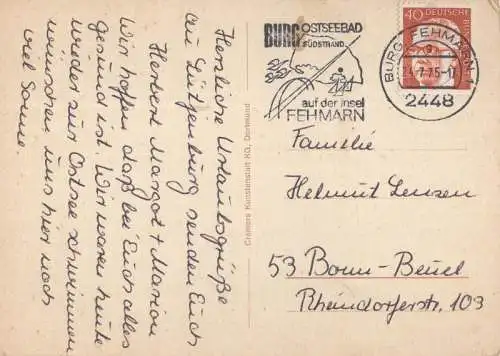 Herzliche Urlaubsgrüße
aus Lütjenburg senden Euch
Herbert Margot + Marion
Wir hoffen daß bei Euch alles
gesund ist. Wir waren heute
wieder zur Ostsee schwimmen
wünschen uns hier noch
viel Sonne.
Cramers Kunstanstalt KG, Dortmund
BURG OSTSEEBAD
SÜDSTRAND
auf der Insel
FEHMARN
BURG FEHMARN 1
a
24.7.75-17
2448
40 DEUTSCHE
Familie
Helmut Lensen
53 Bonn-Beuel
Rheindorferstr. 103